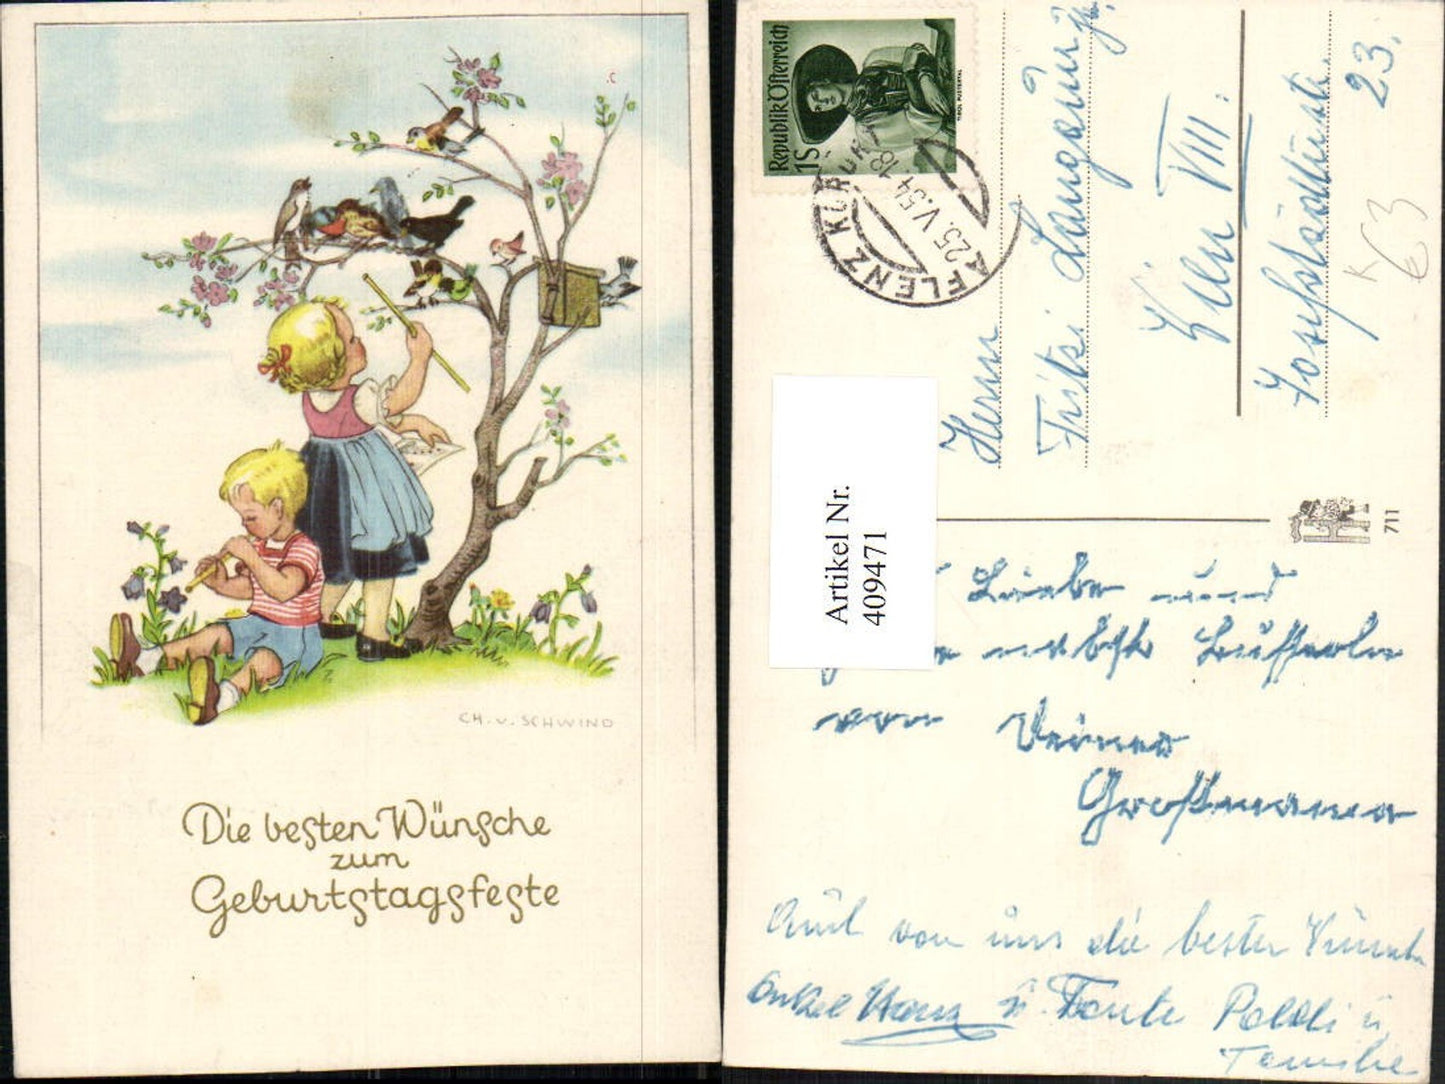 C.
CH. v. SCHWIND
Die besten Wünsche
zum
Geburtstagsfeste
Republik Österreich
1S
TIROL PUSTERTAL
AFLENZ KURORT
25.V.54.18
Herrn
Fritzi jr.
Wien VIII.
Josefstädterstr. 23.
K
63
Artikel Nr.
409471
711
Liebe und
Bussерln
von Deiner
Großmama
Auch von uns die besten Wünsche
Onkel Hans u. Tante Poldi u.
Familie